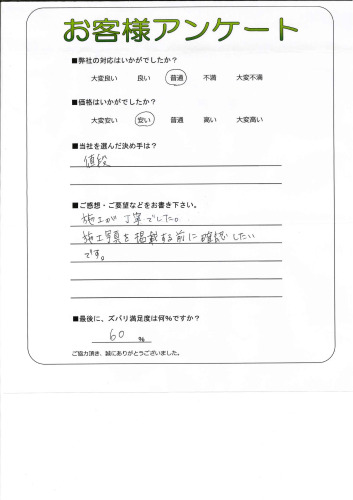 お客様アンケート
■弊社の対応はいかがでしたか?
大変良い 良い 普通 不満 大変不満
■価格はいかがでしたか?
大変安い 安い 普通 高い 大変高い
■当社を選んだ決め手は?
値段
■ご感想・ご要望などをお書き下さい。
施工が丁寧でした。
施工写真を掲載する前に確認したい
です。
■最後に、ズバリ満足度は何%ですか?
60 %
ご協力頂き、誠にありがとうございました。